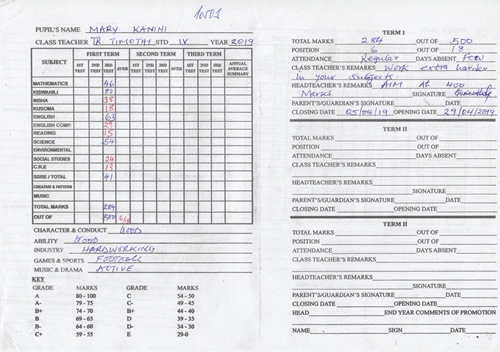 10001
PUPIL'S NAME MARY KANINI
CLASS TEACHER TR. TIMOTHY STD IV YEAR 2019
FIRST TERM SECOND TERM THIRD TERM
SUBJECT 1ST TEST 2ND TEST 3RD TEST AVER 1ST TEST 2ND TEST 3RD TEST AVER 1ST TEST 2ND TEST 3RD TEST AVER ANNUAL AVERAGE SUMMARY
MATHEMATICS 46
KISWAHILI
INSHA 38
KUSOMA 18
ENGLISH 63
ENGLISH COMP. 29
READING 15
SCIENCE 54
ENVIRONMENTAL
SOCIAL STUDIES 24
C.R.E 17
SSRE / TOTAL 41
CREATIVE & PATTERN
MUSIC
TOTAL MARKS 284
OUT OF 500
CHARACTER & CONDUCT GOOD
ABILITY GOOD
INDUSTRY HARDWORKING
GAMES & SPORTS FOOTBALL
MUSIC & DRAMA ACTIVE
KEY
GRADE MARKS GRADE MARKS
A 80 - 100 C 54 - 50
A- 79 - 75 C- 49 - 45
B+ 74 - 70 B+ 44 - 40
B 69 - 65 D 39 - 35
B- 64 - 60 D- 34 - 30
C+ 59 - 55 E 29-0
TERM I
TOTAL MARKS 284 OUT OF 500
POSITION 6 OUT OF 18
ATTENDANCE Regular DAYS ABSENT FEW
CLASS TEACHER'S REMARKS Work extra harder
in your subjects.
HEADTEACHER'S REMARKS AIM At 400
Marks SIGNATURE
PARENT'S/GUARDIAN'S SIGNATURE
CLOSING DATE 05/04/19 OPENING DATE 29/04/2019
TERM II
TOTAL MARKS OUT OF
POSITION OUT OF
ATTENDANCE DAYS ABSENT
CLASS TEACHER'S REMARKS
HEADTEACHER'S REMARKS
SIGNATURE
PARENT'S/GUARDIAN'S SIGNATURE
CLOSING DATE OPENING DATE
TERM II
TOTAL MARKS OUT OF
POSITION OUT OF
ATTENDANCE DAYS ABSENT
CLASS TEACHER'S REMARKS
HEADTEACHER'S REMARKS
SIGNATURE
PARENT'S/GUARDIAN'S SIGNATURE
CLOSING DATE OPENING DATE
HEAD END YEAR COMMENTS OF PROMOTION
NAME SIGN DATE